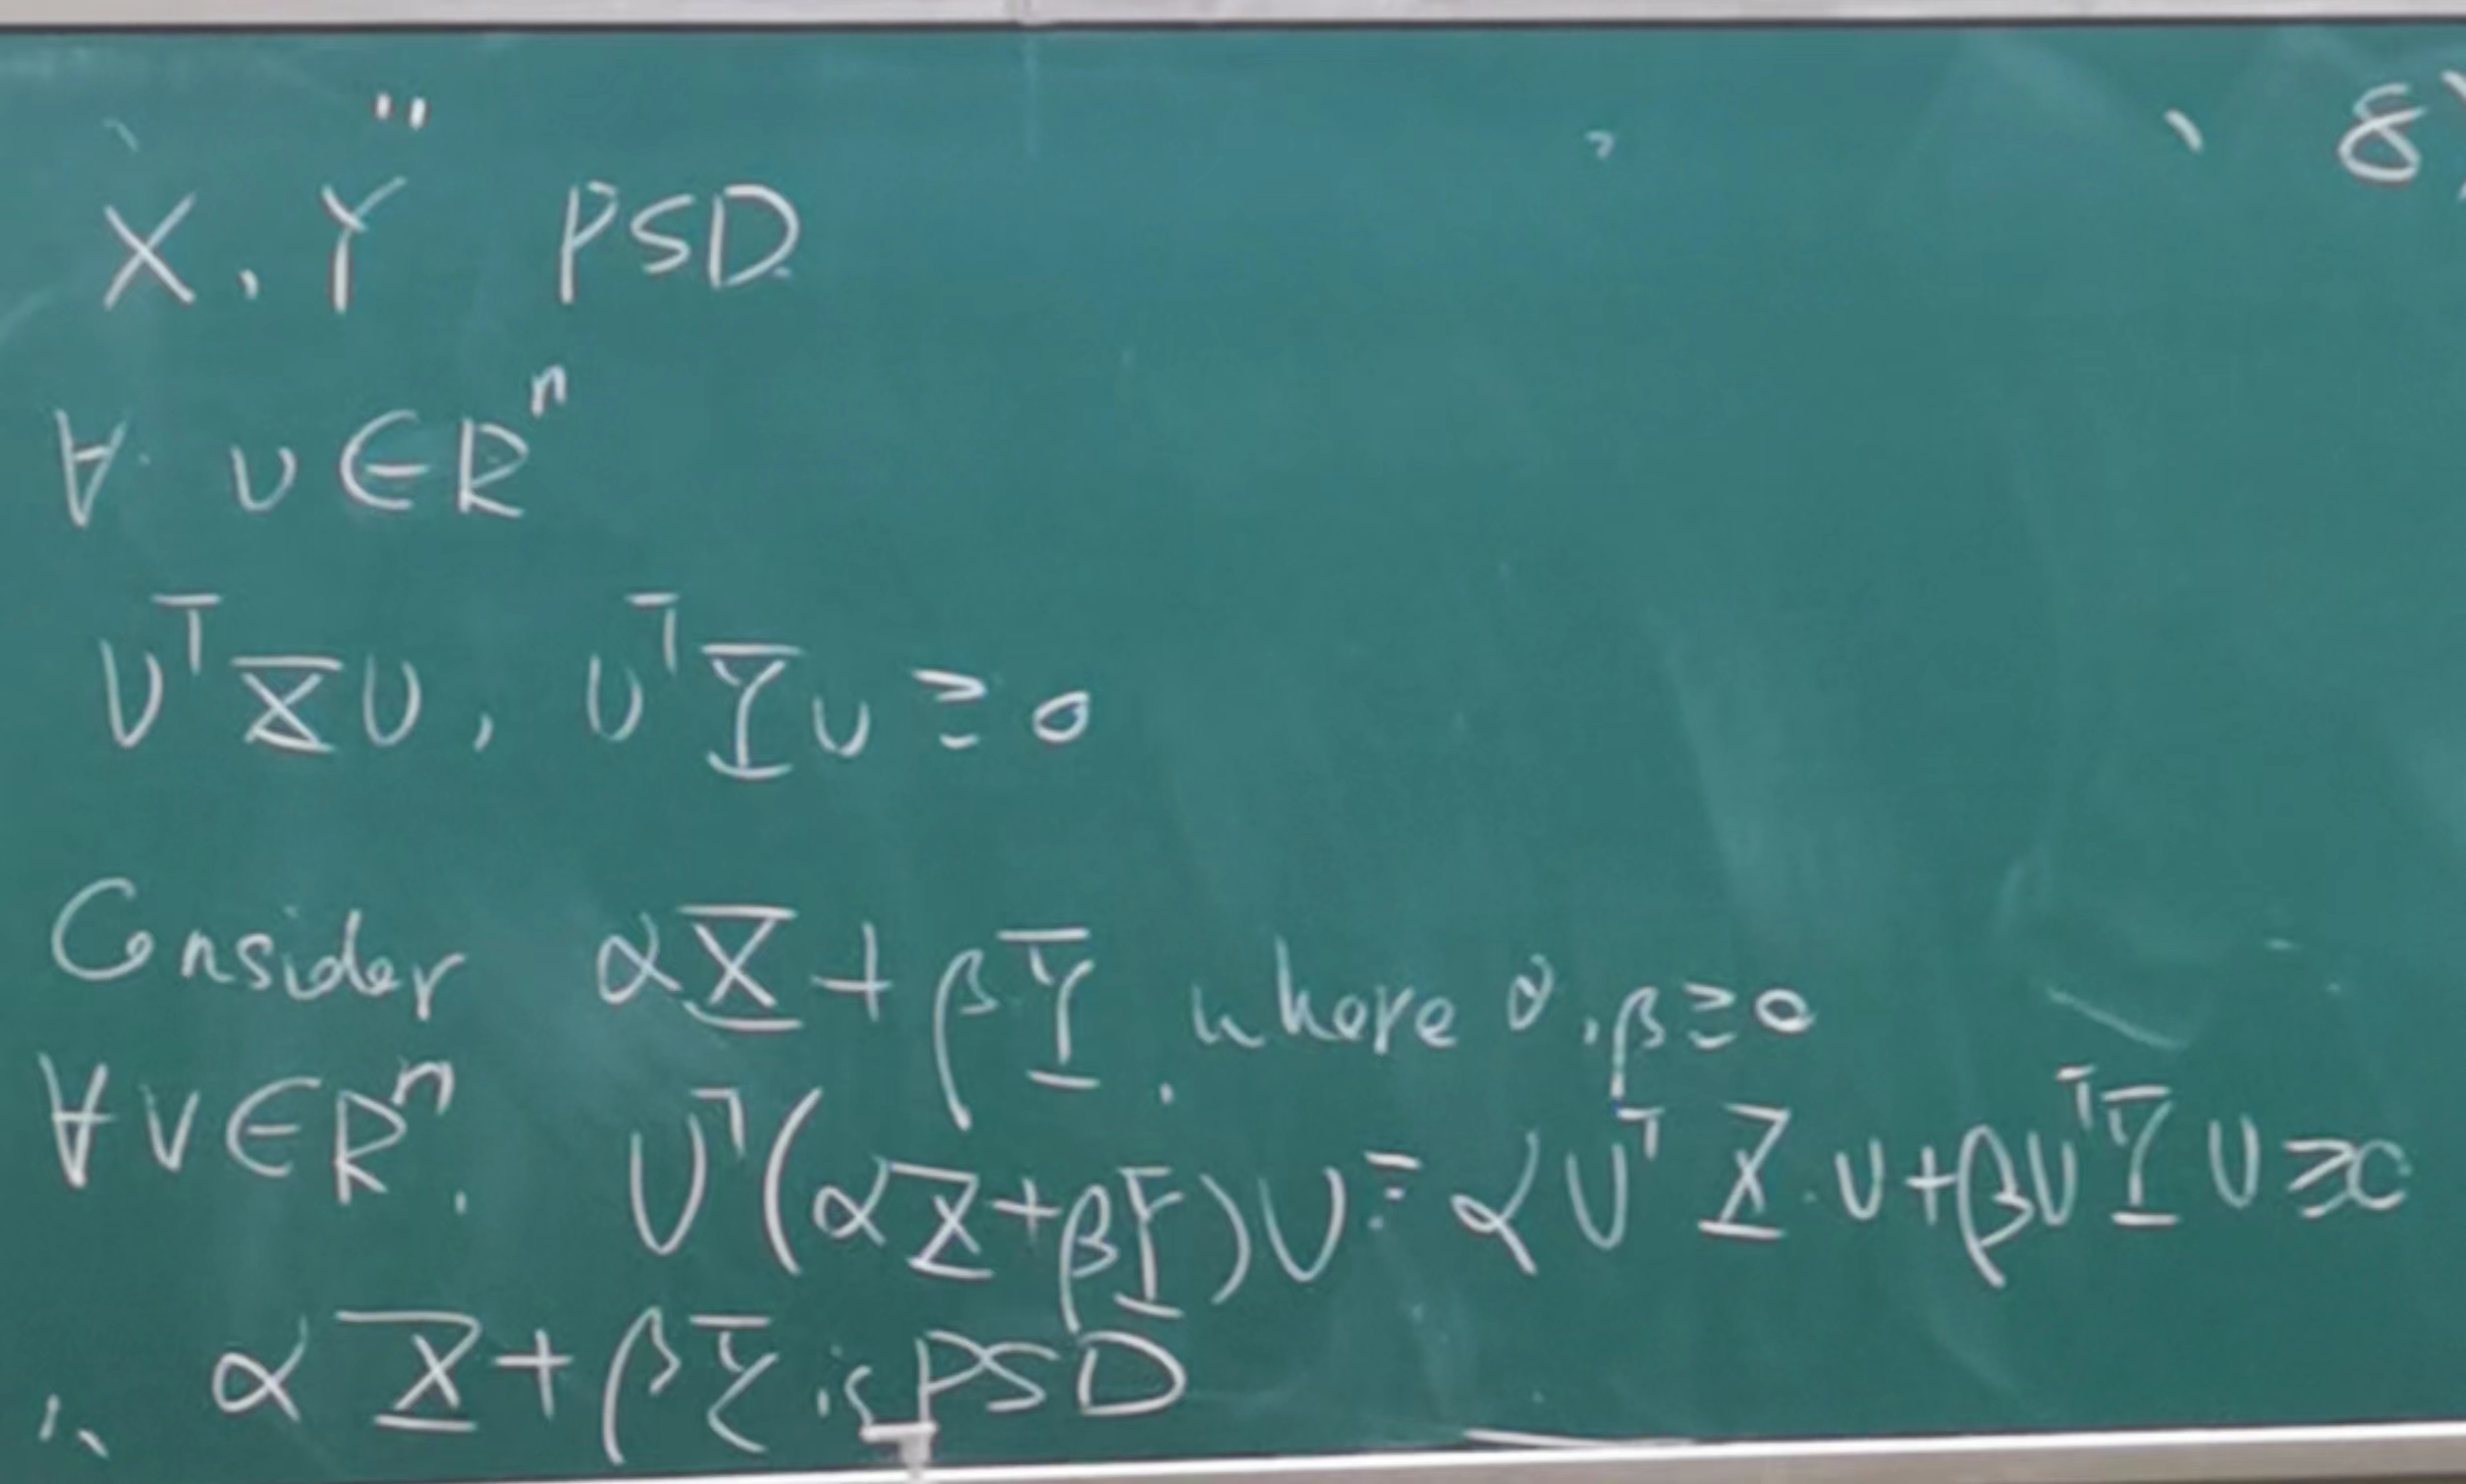 X, Y PSD
8)
∀ v ∈ R^n
v^T X v, v^T Y v ≥ 0
Consider αX + βY, where α, β ≥ 0
∀ v ∈ R^n, v^T(αX + βY)v = αv^T X v + βv^T Y v ≥ 0
∴ αX + βY is PSD